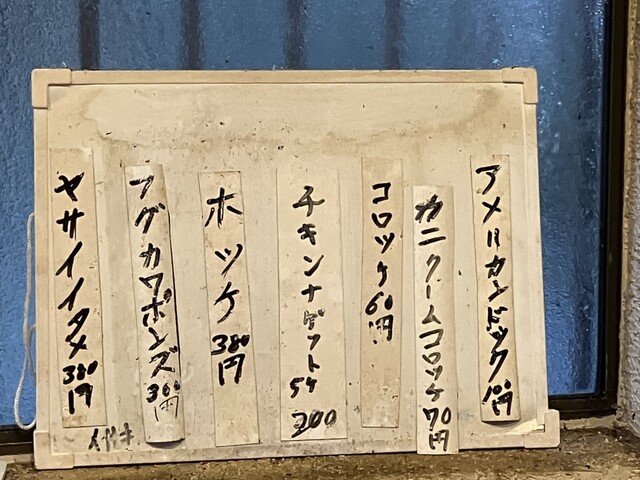 アメリカンドック 100円
カニクームコロッケ 70円
コロッケ 60円
チキンナゲット 5ケ 200
ホッケ 380円
フグカワポンズ 300円
ヤサイイタメ 380円